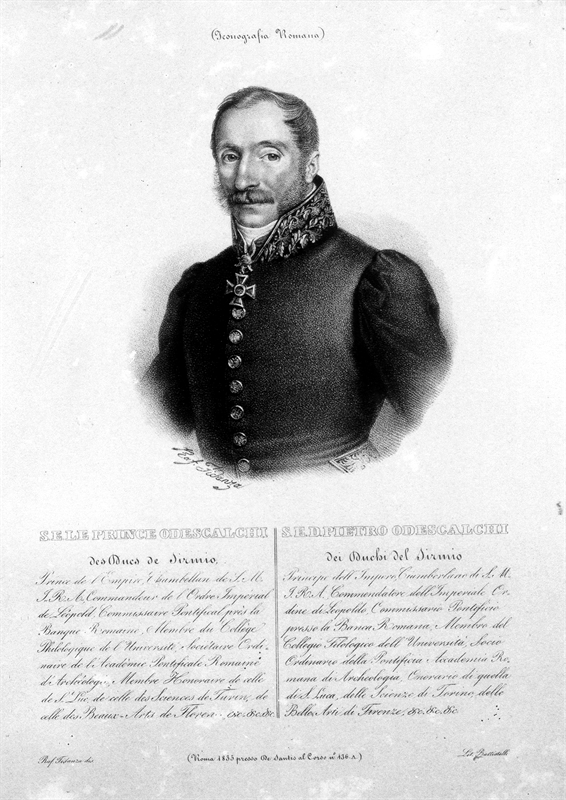 (Iconografia Romana)
Raf. Fidanza
S. E. LE PRINCE ODESCALCHI
des Ducs de Sirmio,
Prince de l'Empire, Chambellan de S. M.
I. R. A. Commandeur de l'Ordre Impérial
de Léopold Commissaire Pontifical près la
Banque Romaine, Membre du Collège
Philologique de l'Université, Sociétaire Ordi-
naire de l'Académie Pontificale Romaine
di Archéologie, Membre Honoraire de celle
de S.t Luc, de celle des Sciences de Turin, de
celle des Beaux-Arts de Floren. &c. &c. &c.
S. E. D. PIETRO ODESCALCHI
dei Duchi del Sirmio
Principe dell'Impero, Ciamberlano di S. M.
I. R. A. Commendatore dell'Imperiale Or-
dine di Leopoldo Commissario Pontificio
presso la Banca Romana, Membro del
Collegio Filologico dell'Università, Socio
Ordinario della Pontificia Accademia Ro-
mana di Archeologia, Onorario di quella
di S. Luca, delle Scienze di Torino, delle
Belle Arti di Firenze, &c. &c. &c.
Raf. Fidanza dis.
(Roma 1835 presso De Santis al Corso n.° 136. A.)
Lit. Battistelli